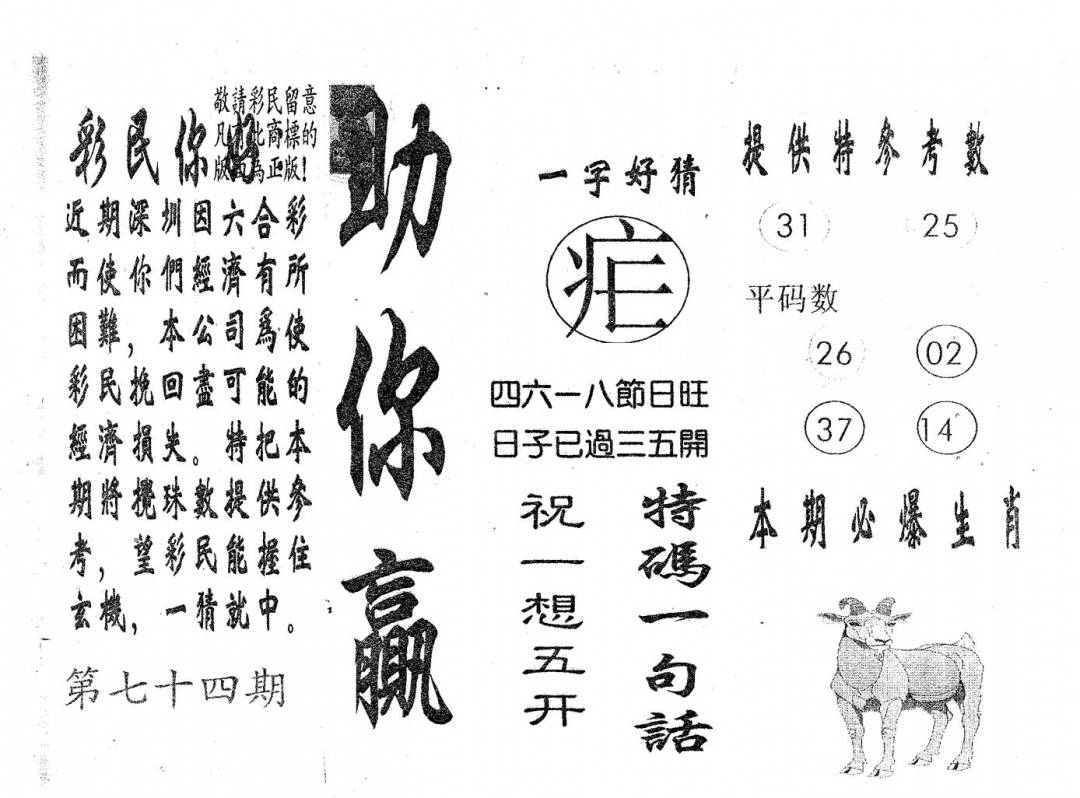 敬請彩民留意
凡有此商標的
版面為正版!
彩民你好
近期深圳因六合彩
而使你們經濟有所
困難，本公司爲使
彩民挽回盡可能的
經濟損失。特把本
期將攪珠數提供參
考，望彩民能握住
玄機，一猜就中。
第七十四期
助你贏
一字好猜
四六一八節日旺
日子已過三五開
特碼一句話
祝一想五开
提供特參考數
31 25
平码数
26 02
37 14
本期必爆生肖